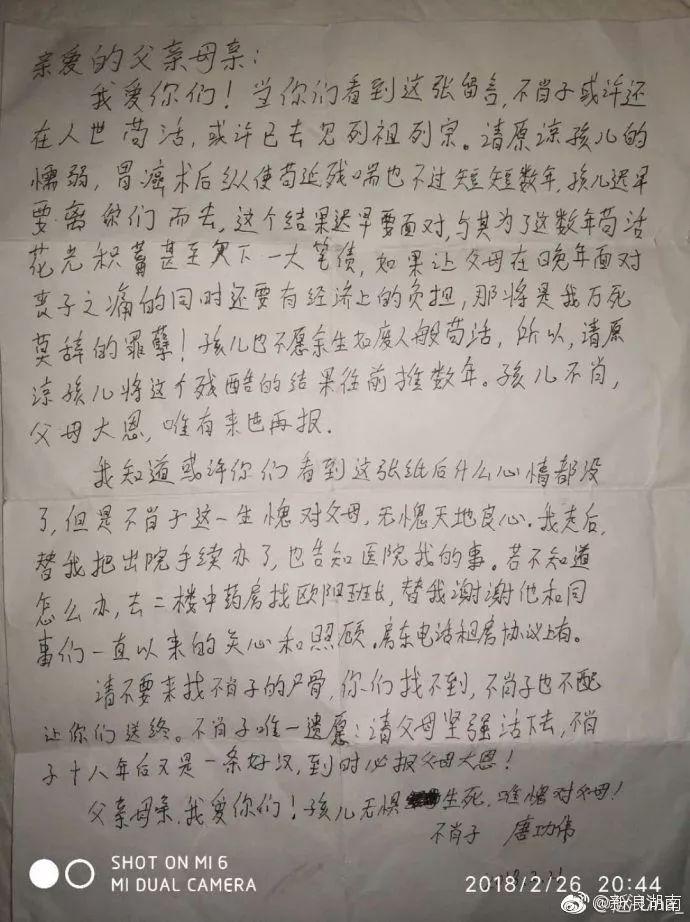 亲爱的父亲母亲：
我爱你们！当你们看到这张留言，不肖子或许还
在人世苟活，或许已去见列祖列宗。请原谅孩儿的
懦弱，胃癌术后纵使苟延残喘也不过短短数年，孩儿迟早
要离你们而去，这个结果迟早要面对，与其为了这数年苟活
花光积蓄甚至欠下一大笔债，如果让父母在晚年面对
丧子之痛的同时还要有经济上的负担，那将是我万死
莫辞的罪孽！孩儿也不愿余生如废人般苟活，所以，请原
谅孩儿将这个残酷的结果往前推数年。孩儿不肖，
父母大恩，唯有来世再报。
我知道或许你们看到这张纸后什么心情都没
了，但是不肖子这一生愧对父母，无愧天地良心。我走后，
替我把出院手续办了，也告知医院我的事。若不知道
怎么办，去二楼中药房找欧阳班长，替我谢谢他和同
事们一直以来的关心和照顾。房东电话租房协议上有。
请不要来找不肖子的尸骨，你们找不到，不肖子也不配
让你们送终。不肖子唯一遗愿：请父母坚强活下去，不肖
子十八年后又是一条好汉，到时必报父母大恩！
父亲母亲，我爱你们！孩儿无惧生死，唯愧对父母！
不肖子 唐功伟
SHOT ON MI 6
MI DUAL CAMERA
2018/2/26 20:44
@新浪湖南